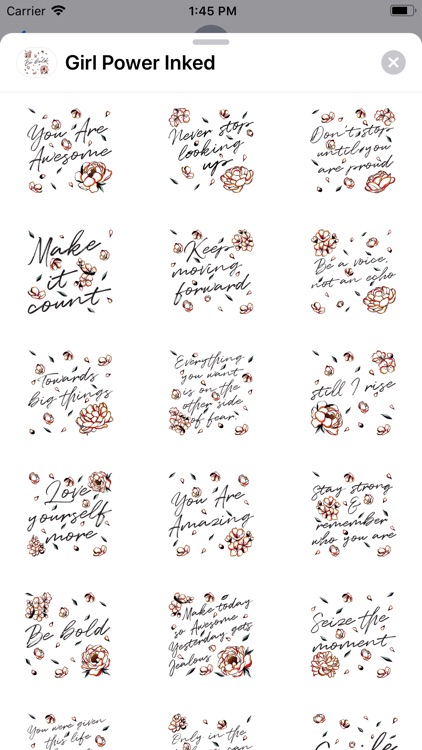 Carrier 1:45 PM
Girl Power Inked
You Are
Awesome
Never stop
looking
up
Don't stop
until you
are proud
Make
it
count
Keep
moving
forward
Be a voice,
not an echo
Towards
Big things
Everything
you want
is on the
other side
of fear
still I rise
Love
yourself
more
You Are
Amazing
Stay strong
&
remember
who you are
Be bold
Make today
so Awesome
Yesterday gets
Jealous
Seize the
moment
You were given
this life
Only in the
can